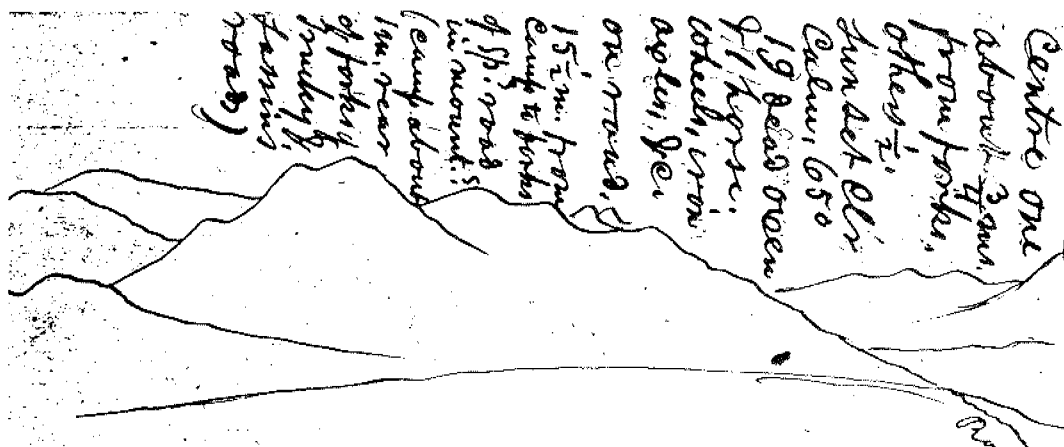 Centre one
about 3/4 ms.
from forks,
others 1/2.
Sunset Clr
Calm, 65°
19 dead oxen
& 1 horse.
wheels, iron
axles, &c.
on road.
15 1/2 m. from
camp to forks
of Sp. road
in mount.s
(camp about
1 m. near
of forks of
road)